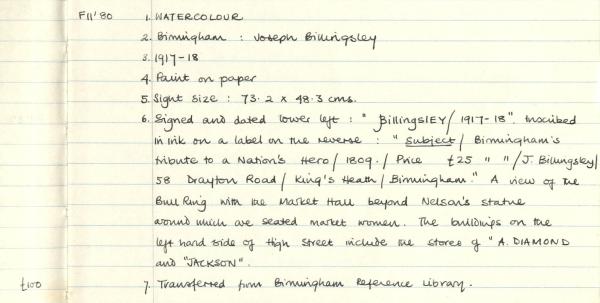 F11'80 1. WATERCOLOUR
2. Birmingham : Joseph Billingsley
3. 1917-18
4. Paint on paper
5. Sight size : 73.2 x 48.3 cms.
6. Signed and dated lower left : " BILLINGSLEY / 1917-18". Inscribed
in ink on a label on the reverse : " Subject / Birmingham's
tribute to a Nation's Hero / 1809. / Price £25 " " / J. Billingsley /
58 Drayton Road / King's Heath / Birmingham." A view of the
Bull Ring with the Market Hall beyond Nelson's statue
around which are seated market women. The buildings on the
left hand side of High Street include the stores of "A. DIAMOND
and "JACKSON".
£100 7. Transferred from Birmingham Reference Library.